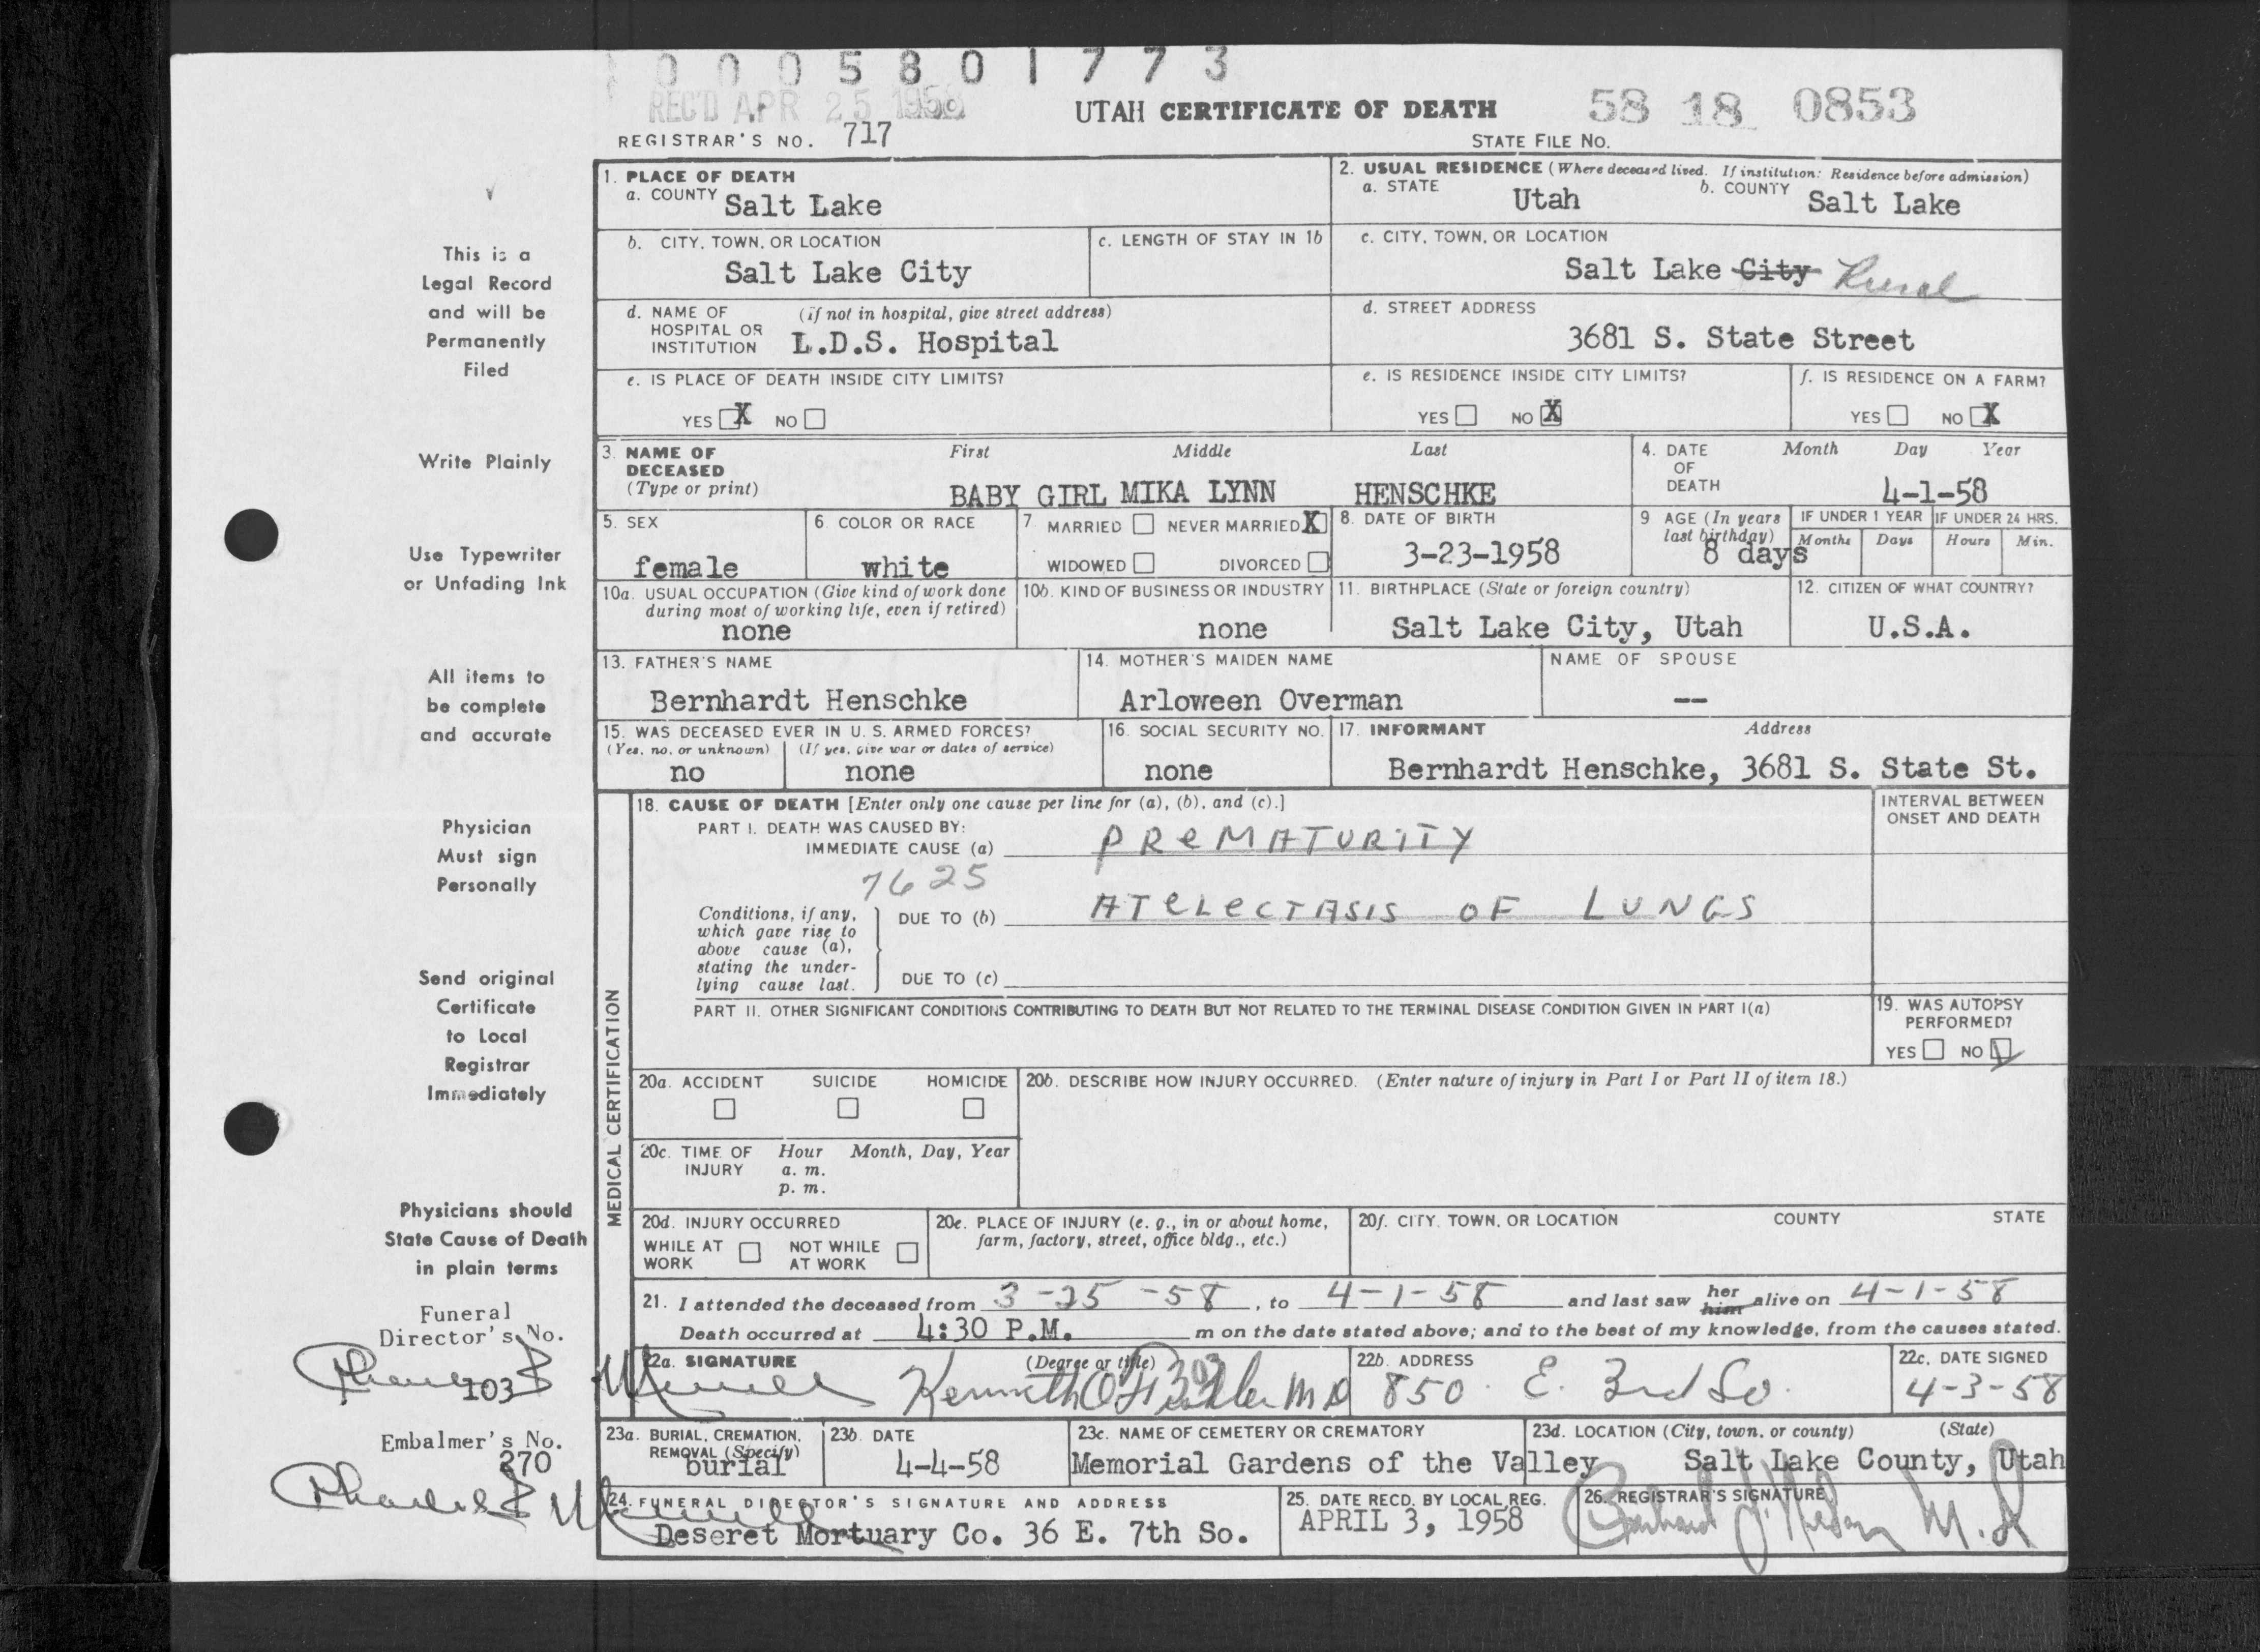 0 0 0 5 8 0 1 7 7 3
REC'D APR 25 1958
UTAH CERTIFICATE OF DEATH
58 18 0853
REGISTRAR'S NO. 717
STATE FILE No.
This is a
Legal Record
and will be
Permanently
Filed
Write Plainly
Use Typewriter
or Unfading Ink
All items to
be complete
and accurate
Physician
Must sign
Personally
Send original
Certificate
to Local
Registrar
Immediately
Physicians should
State Cause of Death
in plain terms
Funeral
Director's No.
103
Embalmer's No.
270
1. PLACE OF DEATH
a. COUNTY Salt Lake
2. USUAL RESIDENCE (Where deceased lived. If institution: Residence before admission)
a. STATE Utah b. COUNTY Salt Lake
b. CITY, TOWN, OR LOCATION
Salt Lake City
c. LENGTH OF STAY IN 1b
c. CITY, TOWN, OR LOCATION
Salt Lake City Rural
d. NAME OF (if not in hospital, give street address)
HOSPITAL OR
INSTITUTION L.D.S. Hospital
d. STREET ADDRESS
3681 S. State Street
e. IS PLACE OF DEATH INSIDE CITY LIMITS?
YES X NO
e. IS RESIDENCE INSIDE CITY LIMITS?
YES NO X
f. IS RESIDENCE ON A FARM?
YES NO X
3. NAME OF First Middle Last
DECEASED
(Type or print) BABY GIRL MIKA LYNN HENSCHKE
4. DATE Month Day Year
OF
DEATH 4-1-58
5. SEX
female
6. COLOR OR RACE
white
7. MARRIED NEVER MARRIED X
WIDOWED DIVORCED
8. DATE OF BIRTH
3-23-1958
9 AGE (In years
last birthday)
8 days
IF UNDER 1 YEAR
Months Days
IF UNDER 24 HRS.
Hours Min.
10a. USUAL OCCUPATION (Give kind of work done
during most of working life, even if retired)
none
10b. KIND OF BUSINESS OR INDUSTRY
none
11. BIRTHPLACE (State or foreign country)
Salt Lake City, Utah
12. CITIZEN OF WHAT COUNTRY?
U.S.A.
13. FATHER'S NAME
Bernhardt Henschke
14. MOTHER'S MAIDEN NAME
Arloween Overman
NAME OF SPOUSE
--
15. WAS DECEASED EVER IN U. S. ARMED FORCES?
(Yes, no, or unknown) (If yes, give war or dates of service)
no none
16. SOCIAL SECURITY NO.
none
17. INFORMANT Address
Bernhardt Henschke, 3681 S. State St.
MEDICAL CERTIFICATION
18. CAUSE OF DEATH [Enter only one cause per line for (a), (b), and (c).]
INTERVAL BETWEEN
ONSET AND DEATH
PART I. DEATH WAS CAUSED BY:
IMMEDIATE CAUSE (a) PREMATURITY
7625
Conditions, if any,
which gave rise to
above cause (a),
stating the under-
lying cause last.
DUE TO (b) ATELECTASIS OF LUNGS
DUE TO (c)
PART II. OTHER SIGNIFICANT CONDITIONS CONTRIBUTING TO DEATH BUT NOT RELATED TO THE TERMINAL DISEASE CONDITION GIVEN IN PART I(a)
19. WAS AUTOPSY
PERFORMED?
YES NO
20a. ACCIDENT SUICIDE HOMICIDE
20b. DESCRIBE HOW INJURY OCCURRED. (Enter nature of injury in Part I or Part II of item 18.)
20c. TIME OF Hour Month, Day, Year
INJURY a. m.
p. m.
20d. INJURY OCCURRED
WHILE AT NOT WHILE
WORK AT WORK
20e. PLACE OF INJURY (e. g., in or about home,
farm, factory, street, office bldg., etc.)
20f. CITY, TOWN, OR LOCATION COUNTY STATE
21. I attended the deceased from 3-25-58, to 4-1-58 and last saw her him alive on 4-1-58
Death occurred at 4:30 P.M. m on the date stated above; and to the best of my knowledge, from the causes stated.
22a. SIGNATURE (Degree or title)
Kenneth M D
22b. ADDRESS
850 E. 3rd So.
22c. DATE SIGNED
4-3-58
23a. BURIAL, CREMATION,
REMOVAL (Specify)
burial
23b. DATE
4-4-58
23c. NAME OF CEMETERY OR CREMATORY
Memorial Gardens of the Valley
23d. LOCATION (City, town, or county) (State)
Salt Lake County, Utah
24. FUNERAL DIRECTOR'S SIGNATURE AND ADDRESS
Deseret Mortuary Co. 36 E. 7th So.
25. DATE RECD. BY LOCAL REG.
APRIL 3, 1958
26. REGISTRAR'S SIGNATURE
M.D.